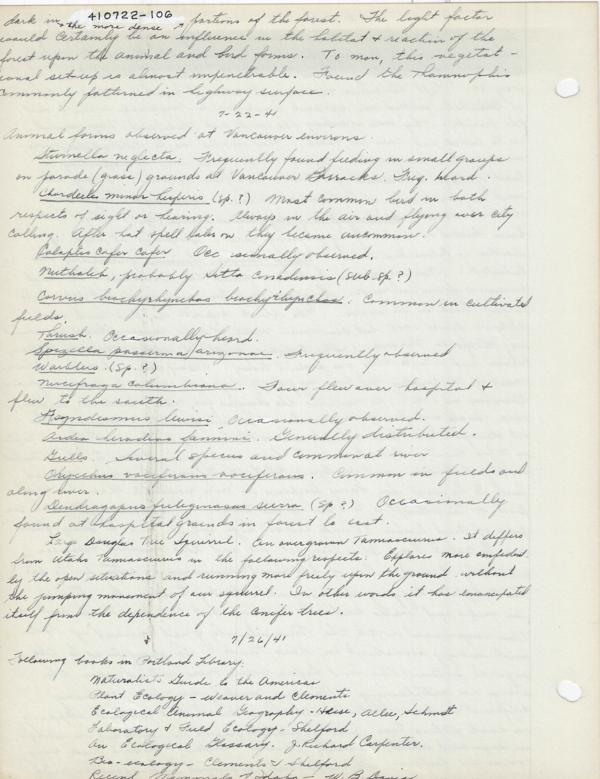 410722-106
dark in the more dense portions of the forest. The light factor
would certainly be an influence in the habitat & reaction of the
forest upon the animal and bird forms. To man, this vegetat-
ional set-up is almost impenetrable. Found the Thamnophis
commonly patterned in highway surface.
7-22-41
Animal forms observed at Vancouver environs.
Sturnella neglecta. Frequently found feeding in small groups
on parade (grass) grounds at Vancouver Barracks. Freq. heard.
Chordeiles minor hesperis (sp.?) Most common bird in both
respects of sight or hearing. Always in the air and flying over city
calling. After hot spell later on they became uncommon.
Colaptes cafer cafer Occasionally observed.
Nuthatch, probably Sitta Canadensis (sub-sp.?)
Corvus brachyrhynchos brachyrhynchos. Common in cultivated
fields.
Thrush. Occasionally heard.
Spizella passerina arizonae. Frequently observed
Warblers. (Sp.?)
Nucifraga columbiana. Four flew over hospital &
flew to the south.
Asyndesmus lewisi. Occasionally observed.
Ardea herodias fannini. Generally distributed.
Gulls. Several species and common at river
Oxyechus vociferous vociferous. Common in fields and
along river.
Dendragapus fuliginosus sierra (Sp?) Occasionally
found at hospital grounds in forest to east.
Douglas Tree Squirrel. An overgrown Tamiasciurus. It differs
from Utahs Tamiasciurus in the following respects: Explores more
by the open situations and running more freely upon the ground without
the jumping movement of our squirrel. In other words it has emancipated
itself from the dependence of the conifer trees.
7/26/41
Following books in Portland Library:
Naturalists Guide to the Americas
Plant Ecology - Weaver and Clements
Ecological Animal Geography - Hesse, Allee, Schmidt
Laboratory & Field Ecology - Shelford
An Ecological Glossary. J. Richard Carpenter.
Bio-ecology - Clements & Shelford
Recent Mammals of Idaho - W. B. Davis